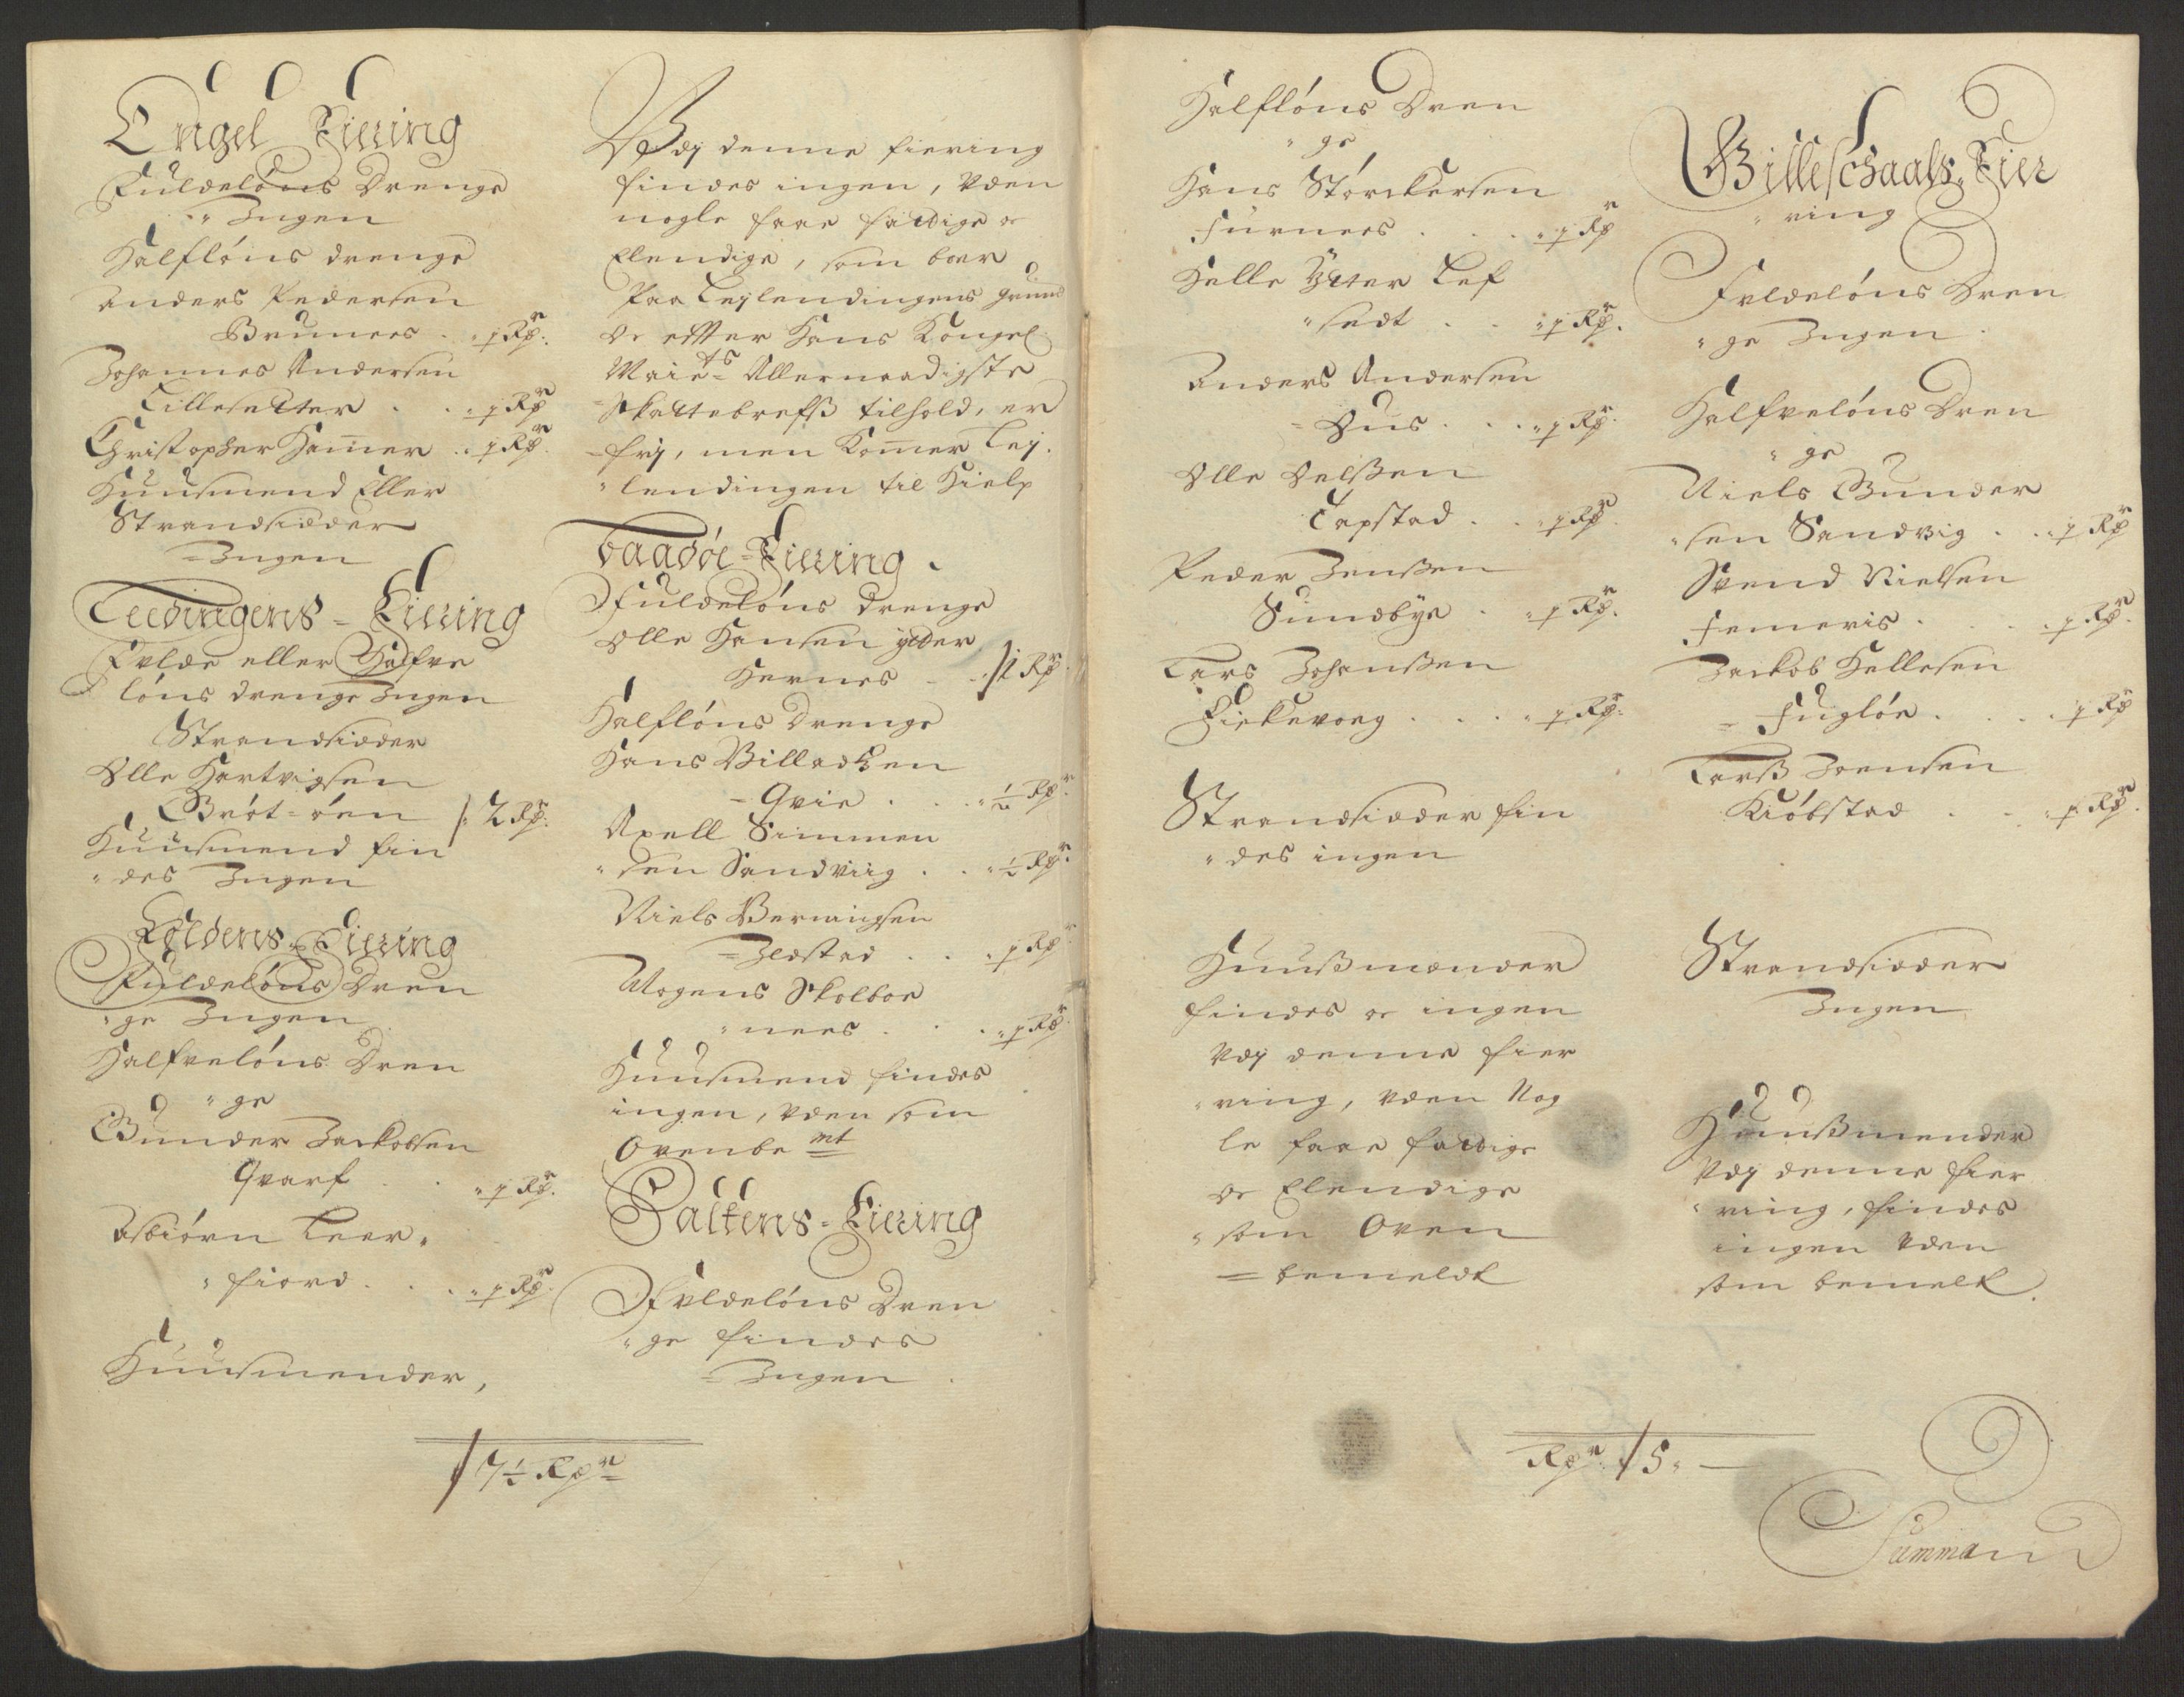 Engel Fiering
Fuldeløns Drenge
" Ingen
Halfløns drenge
Anders Pedersen
Bruness . "½ Rdr.
Johannes Andersen
Lillesætter . . "½ Rdr
Christopher Hamer . "½ Rdr.
Huusmend Eller
Strandsidder
= Ingen
Leedingens = Fiering
Fulde eller Halfve
løns drenge Ingen
Strandsidder
Olle Hartvigsen
Brøt=øen 2 Rdr.
Huusmend fin
" des Ingen
Foldens = Fiering
Fuldeløns Dren
" ge Ingen
Halfveløns Dren
" ge
Gunder Jackobsen
Qvarf . . "½ Rdr.
Asbiørn Leer=
" fiord . . . "½ Rdr.
Huusmender,
7½ Rdr
Udj denne fiering
findes ingen, Uden
nogle faae fattige oc
Elendige, som boer
Paa Leylendingens grund
Oc efter Hans Kongel
Maiets Allernaadigste
Skattebrefs tilhold, er
=frj, men Komer Ley.
" lendingen til Hielp
Baadøe=Fiering.
Fuldeløns Drenge
Olle Hansen ytter
Hernes . . 1 Rdr
Halfløns Drenge
Hans Willadsen
= Qvie . . . "½ Rdr.
Axell Simmen
" sen Sandviig . . "½ Rdr.
Niels Berningsen
= Ildstad . . "½ Rdr
Mogens Skolboe
" nees . . . "½ Rdr.
Huusmend findes
ingen, Uden som
Ovenbemt
Saltens=Fiering
Fuldeløns Dren
" ge findes
= Ingen
Halfløns Dren
" ge
Hans Størckersen
Furnees . . . "½ Rdr
Helle Ytter Lef
" sedt . . "½ Rdr.
Anders Andersen
= Hus . . . "½ Rdr.
Olle Oelssen
Tapstad . . "½ Rdr.
Peder Jenssen
Sundbye . "½ Rdr.
Lars Johanssen
Fiekevoeg . . . "½ Rdr.
Strandsidder fin
" des ingen
Huussmender
findes oc ingen
Udj denne fier
" ring, Uden Nog
le faae fattige
oc Elendige
" som Oven
= bemeldt
Rdr. 5. —
Gilleschaals=Fier
" ring
Fuldeløns Dren
" ge Ingen
Halfveløns Dren
" ge
Niels Gunder
" sen Sandvig . . "½ Rdr
Svend Nielsen
Femeris . . . "½ Rdr.
Jackob Hellesen
= Fugløe . . . "½ Rdr
Larss Joensen
Kiøbstad . . "½ Rdr.
Strandsidder
Ingen
Huussmender
Udj denne fier
" ring, findes
ingen Uden
som bemelt.
Summa